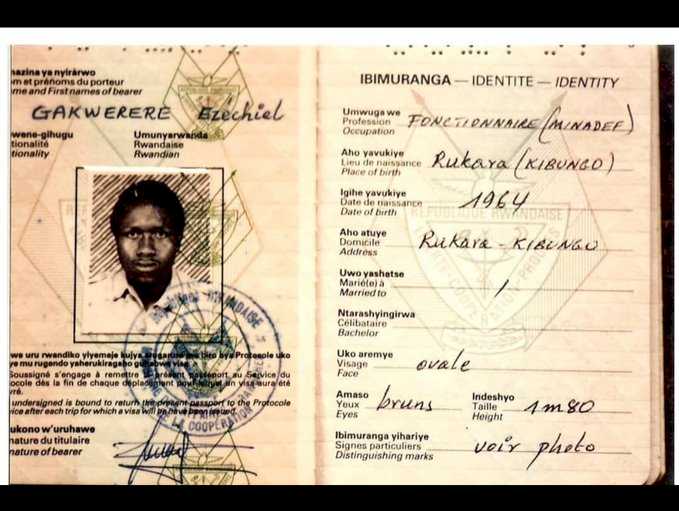 nazina ya nyirârwo
om et prénoms du porteur
me and First names of bearer
GAKWERERE Ezéchiel
wene-gihugu Umunyarwanda
tionalité Rwandaise
tionality Rwandian
we uru rwandiko yiyemeje kujya
Protocole uko
re mu rugendo yaherukiragaho
visa
Soussigné s'engage à remettre le présent passeport au Service du
ocole dès la fin de chaque déplacement pour lequel un visa aura été
vré.
undersigned is bound to return the present passport to the Protocole
vice after each trip for which a visa will have been issued.
ukono w'uruhawe
nature du titulaire
nature of bearer
REPUBLIQUE RWANDAISE
COOPERATION
IBIMURANGA — IDENTITE — IDENTITY
Umwuga we
Profession FONCTIONNAIRE (MINADEF)
Occupation
Aho yavukiye
Lieu de naissance Rukara (KIBUNGO)
Place of birth
Igihe yavukiye
Date de naissance 1964
Date of birth
Aho atuye
Domicile Rukara - KIBUNGO
Address
Uwo yashatse
Marié(e) à /
Married to
Ntarashyingirwa
Célibataire
Bachelor
Uko aremye
Visage ovale
Face
Amaso Indeshyo
Yeux bruns Taille 1m80
Eyes Height
Ibimuranga yihariye
Signes particuliers voir photo
Distinguishing marks
REPUBLIQUE RWANDAISE
LIBERTE-COOPERATION-PROGRES